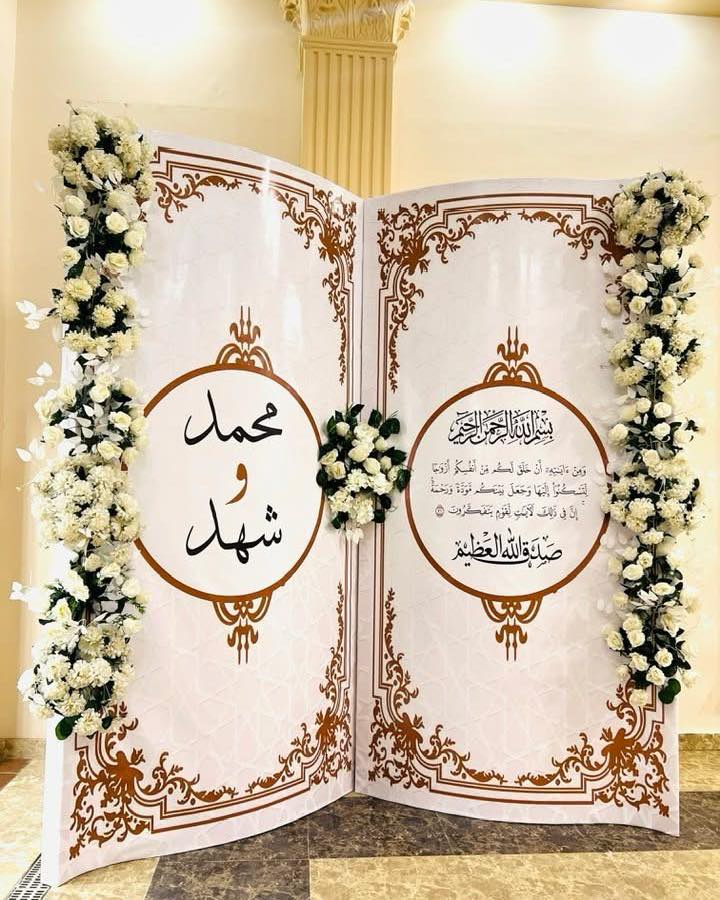 محمد
و
شهد
بسم الله الرحمن الرحيم
وَمِنْ ءَايَٰتِهِۦٓ أَنْ خَلَقَ لَكُم مِّنْ أَنفُسِكُمْ أَزْوَٰجًا
لِّتَسْكُنُوٓا۟ إِلَيْهَا وَجَعَلَ بَيْنَكُم مَّوَدَّةً وَرَحْمَةً
إِنَّ فِى ذَٰلِكَ لَءَايَٰتٍ لِّقَوْمٍ يَتَفَكَّرُونَ ٢١
صدق الله العظيم